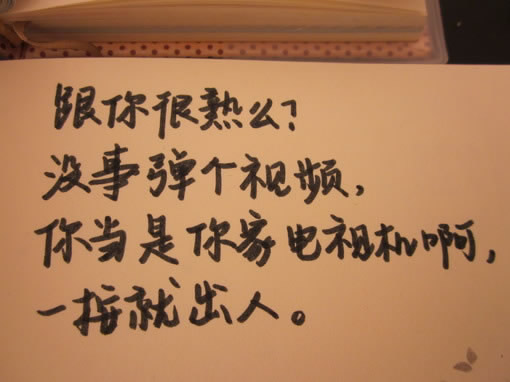 跟你很熟么？
没事弹个视频，
你当是你家电视机啊，
一按就出人。